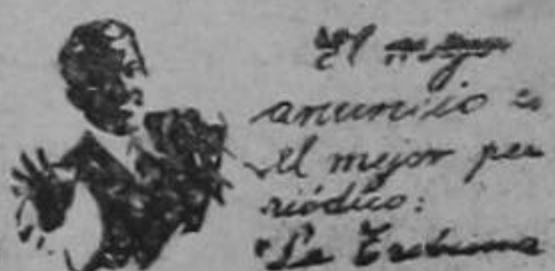 El mejor
anuncio es
el mejor pe
riódico:
"La Tribuna